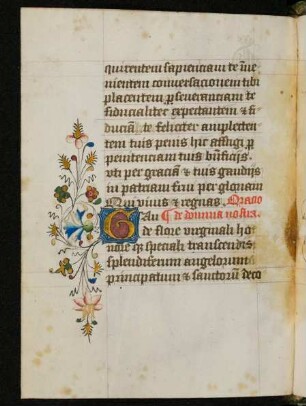 quirentem sapienciam te īue
nientem conversacionem tibi
placentem perseueranciam te
fiducialiter expectantem & fi
duciā te feliciter amplecten
tem tuis penis hic affligi p
penitenciam tuis bn̄ficijs
vti per graciā & tuis gaudijs
in patriam frui per gloriam
Qui viuis & regnas. Oracio
de domina nostra.
Gaude flore virginali ho
nore q̄ speciali transcendis
splendiferum angelorum
principatum & sanctorū deco